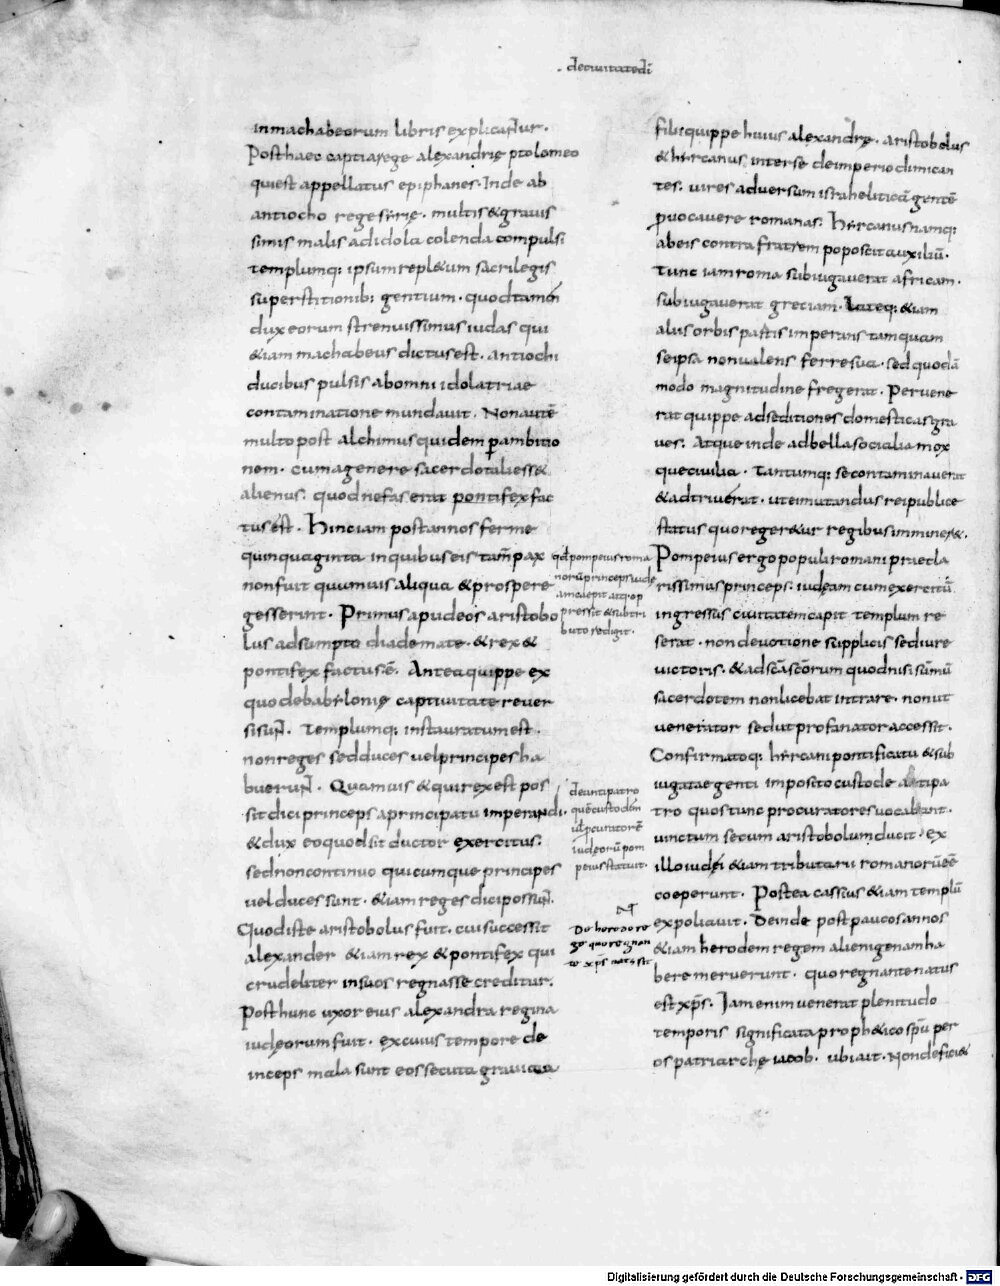 de ciuitate di
in machabeorum libris explicantur.
Post haec capta a rege alexandrie ptolomeo
qui est appellatus epiphanes. Inde ab
antiocho rege sirię. multis & grauis
simis malis ad idola colenda compulsi
templumq: ipsum repl&um sacrilegis
superstitionib; gentium. quod tamen
dux eorum strenuissimus iudas qui
&iam machabeus dictus est. antiochi
ducibus pulsis ab omni idolatriae
contaminatione mundauit. Non autē
multo post alchimus quidem p ambitio
nem. cum a genere sacerdotali ess&
alienus. quod nefas erat pontifex fac
tus est. Hinc iam post annos ferme
quinquaginta in quibus eis tam̄ pax
non fuit quamuis aliqua & prospere
gesserint. Primus apud eos aristobo
lus adsumpto diademate. & rex &
pontifex factus ē. Antea quippe ex
quo de babẏlonię captiuitate reuer
si sunt. Templumq: instauratum est.
non reges sed duces uel principes ha
buerunt. Quamuis & qui rex est pos
sit dici princeps a principatu imperandi.
& dux eo quod sit ductor exercitus.
sed non continuo quicumque principes
uel duces sunt. &iam reges dici possunt.
Quod iste aristobolus fuit. cui successit
alexander &iam rex & pontifex qui
crudeliter in suos regnasse creditur.
Post hunc uxor eius alexandra regina
iudęorum fuit. ex cuius tempore de
inceps mala sunt eos secuta grauiora
qd pompeius roma
norū princeps iude
am cepit atq: op
pressit & subtri
buto redigit.
de antipatro
quē custodem
ul pcuratorē
iudęorū pom
peius statuit.
De herode re
ge quo regnan
te xps natus sit
filii quippe huius alexandrę. aristobolus
& hẏrcanus inter se de imperio dimican
tes. uires aduersum israheliticā gentē
prouocauere romanas. Hẏrcanus namq:
ab eis contra fratrem poposcit auxiliū.
Tunc iam roma subiugauerat africam.
subiugauerat greciam. Lateq: &iam
aliis orbis partis imperans tamquam
se ipsa non ualens ferre sua. sed quodā
modo magnitudine fregerat. Peruene
rat quippe ad seditiones domesticas gra
ues. Atque inde ad bella socialia mox
que ciuilia. Tantumq: se contaminauerat
& adtriuerat. ut ei mutandus rei publice
status quo reger&ur regibus immin&&.
Pompeius ergo populi romani praecla
rissimus princeps. iudęam cum exercitū
ingressus ciuitatem capit templum re
serat. non deuotione supplicis sed iure
uictoris. & ad scā scōrum quod nisi sūmū
sacerdotem non licebat intrare. non ut
uenerator sed ut profanator accessit.
Confirmatoq: hẏrcani pontificatu & sub
iugatae genti imposito custode antipa
tro quos tunc procuratores uocabant.
uinctum secum aristobolum ducit. Ex
illo iudęi &iam tributarii romanorū eē
coeperunt. Postea cassius &iam templū
expoliauit. Deinde post paucos annos
&iam herodem regem alienigenam ha
bere meruerunt. quo regnante natus
est xps. Iam enim uenerat plenitudo
temporis significata proph&ico spū per
os patriarchę iacob. ubi ait. Non defici&
Digitalisierung gefördert durch die Deutsche Forschungsgemeinschaft - DFG